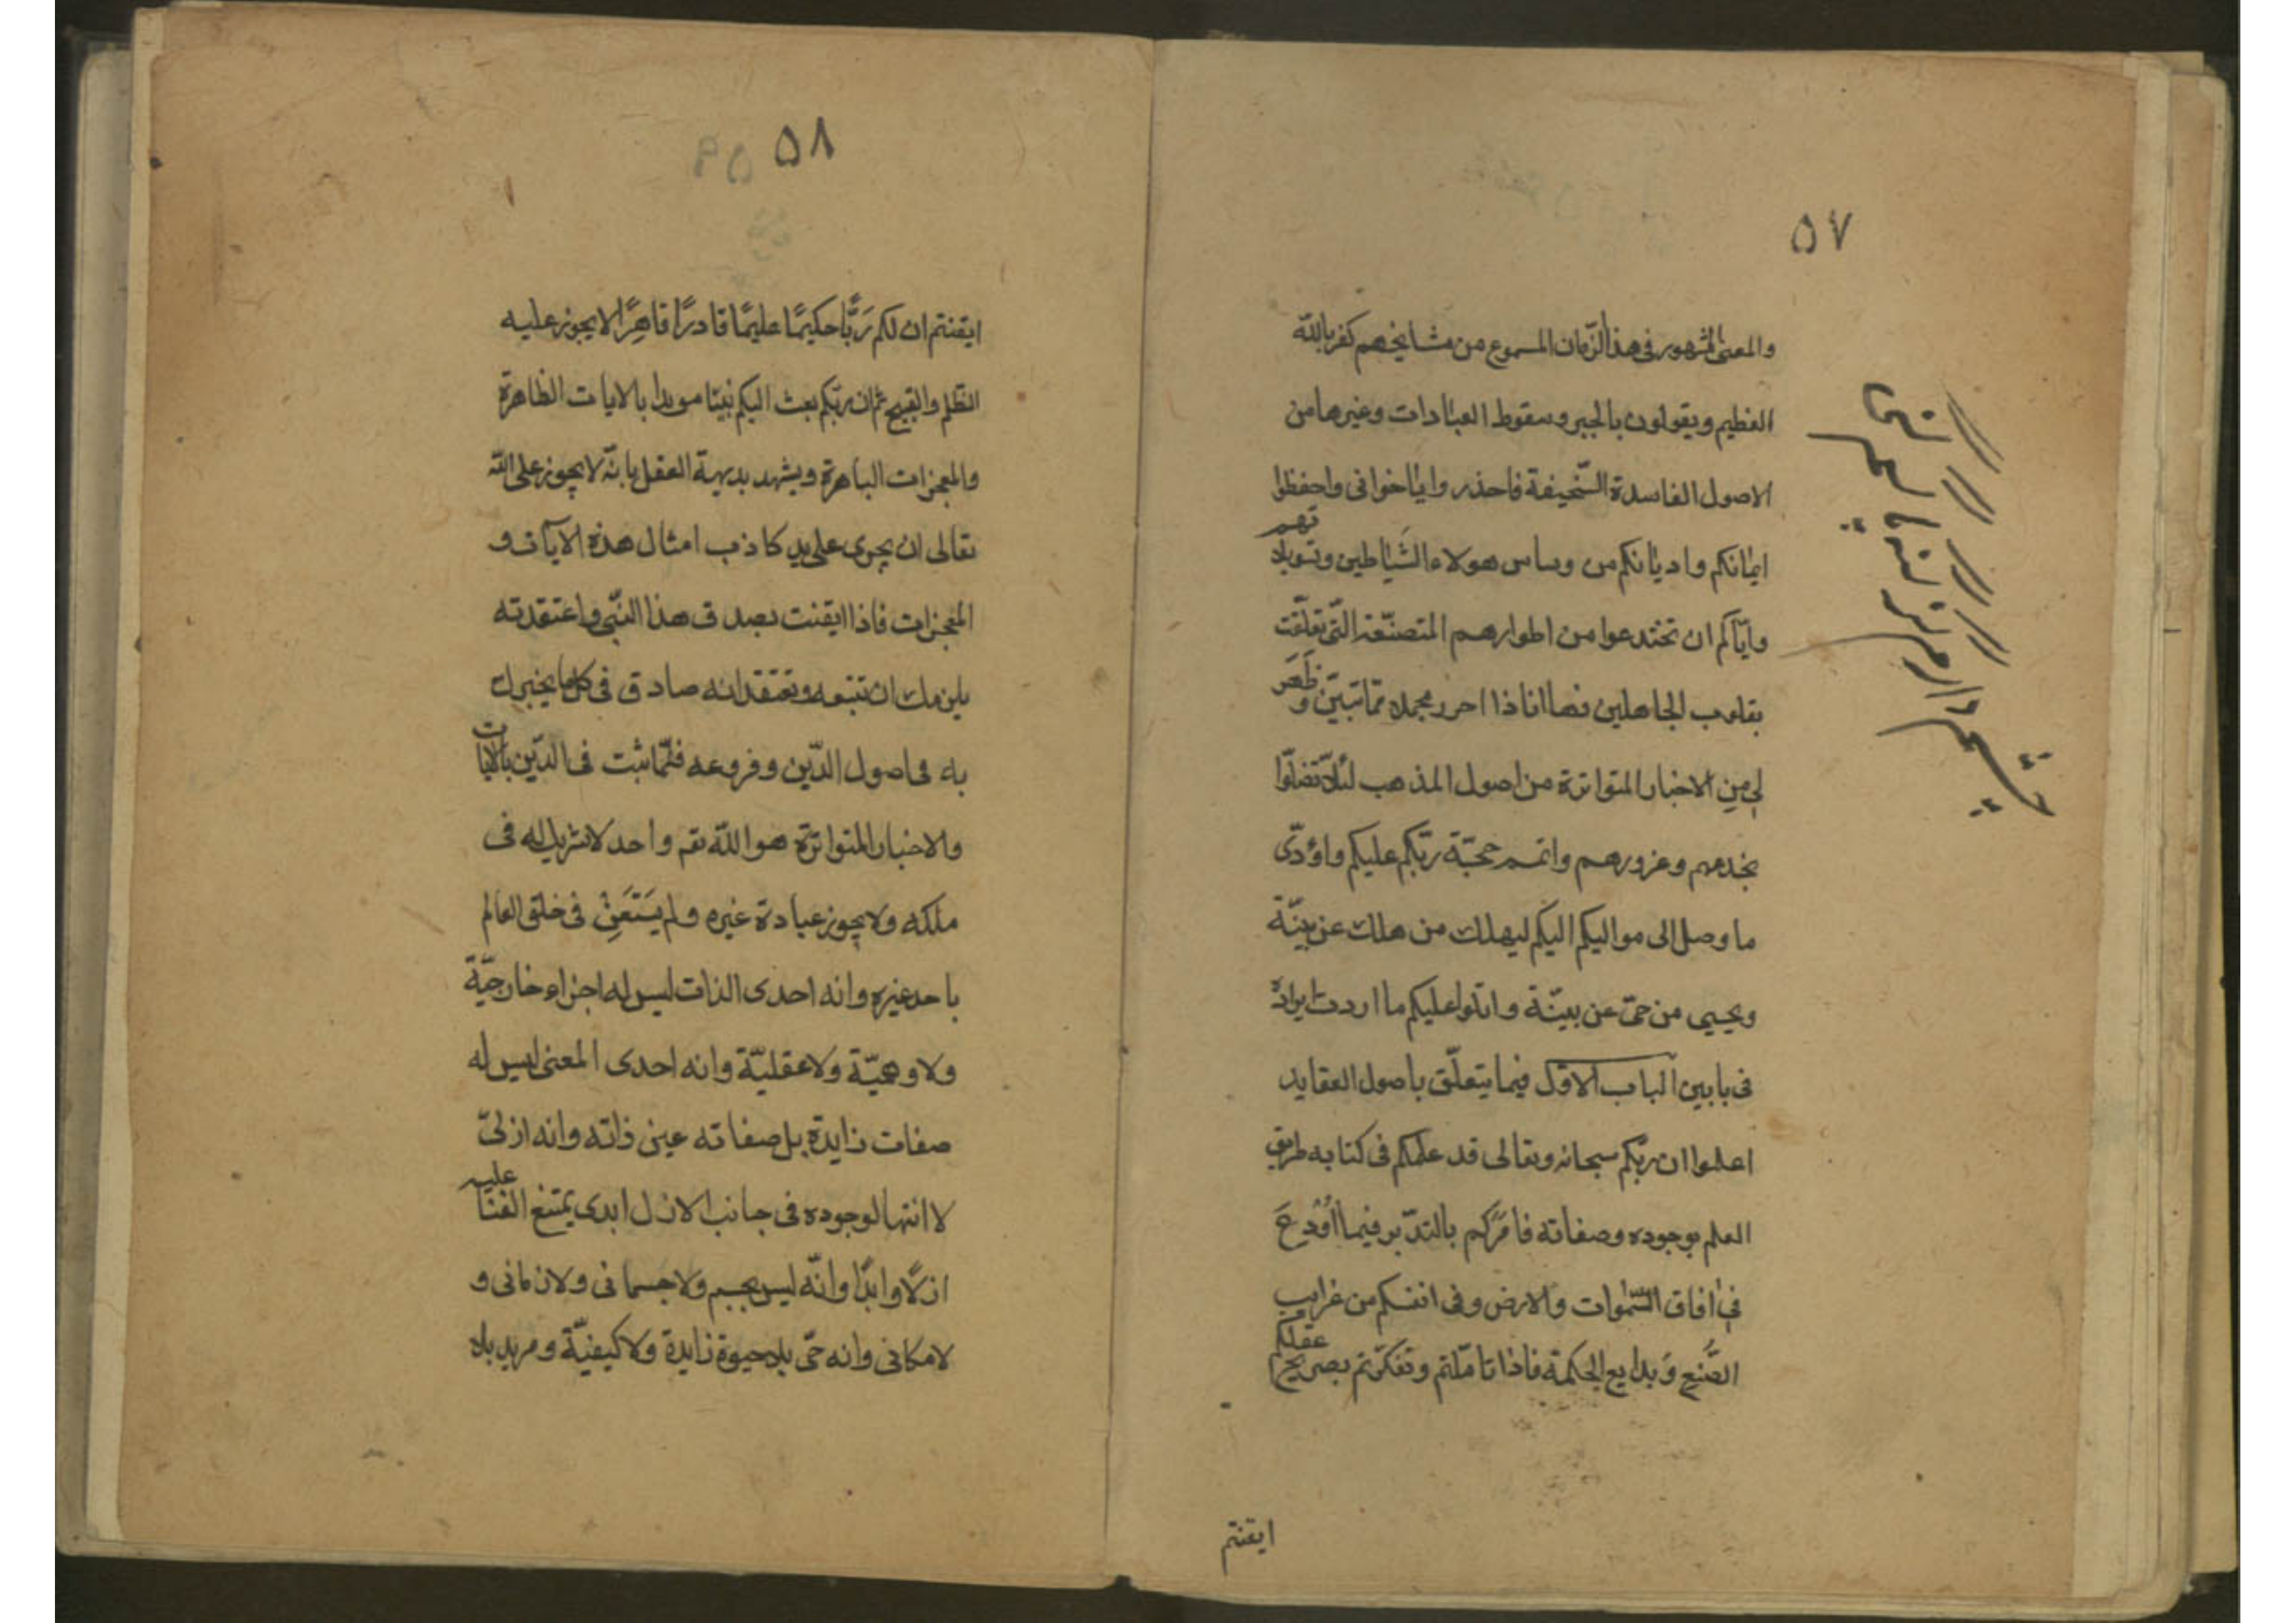 ٥٧
والمعنى المشهور فى هذا الزّمان المسموع من مشايخهم كفر بالله
العظيم ويقولون بالجبر وسقوط العبادات وغيرها من
الاصول الفاسدة السّخيفة فاحذروا يا اخوانى واحفظوا
ايمانكم واديانكم من وساس هولاء الشَّياطين وتسويلاتهم
واياكم ان تختدعوا من اطوارهم المتصنّعة الّتى تعلّقت
بقلوب الجاهلين فها انا ذا احرر مجملا ممّا تبيّن وظَهَرَ
لى من الاخبار المتواترة من اصول المذهب لئلّا تضلّوا
بخدعهم وغرورهم واتمم حجّة ربّكم عليكم واؤدّى
ما وصل الى مواليكم اليكم ليهلك من هلك عن بيّنة
ويحيى من حىّ عن بيّنة واتلوا عليكم ما اردت ايراده
فى بابين الباب الاوّل فيما يتعلّق باصول العقايد
اعلموا ان ربّكم سبحانه وتعالى قد علمكم فى كتابه طريق
العلم بوجوده وصفاته فامَرَكم بالتدّبر فيما اُوْدِعَ
فى افاق السّموات والارض وفى انفسكم من غرايب
الصُّنعِ وَبدايع الحكمة فاذا تامّلتم وتفكّرتم بصريح عقلكم
ايقنتم
٥٨
ايقنتم ان لكم رَبًّا حكيمًا عليمًا قادرًا قاهِرًا لا يجوز عليه
الظلم والقبيح ثم ان ربّكم بعث اليكم نبيّنا مويدا بالايات الظاهرة
والمعجزات الباهرة ويشهد بديهة العقل بانّه لا يجوز على الله
تعالى ان يجرى على يد كاذب امثال هذه الآيات و
المعجزات فاذا ايقنت بصدق هذا النّبى واعتقدته
يلزمك ان تتبعه وتعتقد انه صادق فى كلّ ما يخبرك
به فى اصول الدّين وفروعه فلمّا ثبت فى الدّين بالايات
والاخبار المتواترة هو الله تعـ واحد لا شريك له فى
ملكه ولا يجوز عبادة غيره ولم يَسْتَعِنْ فى خلق العالم
باحد غيره وانه احدى الذات ليس له اجزاء خارجيّة
ولا وهميّة ولا عقليّة وانه احدى المعنى ليس له
صفات زايدة بل صفاته عين ذاته وانه ازلىّ
لا انتها لوجوده فى جانب الازل ابدى يمتنع الفنا عليه
ازلًا وابدًا وانّه ليس بجسم ولا جسمانى ولا زمانى و
لا مكانى وانه حىّ بلا حيوة زايدة ولا كيفيّة ومريد بلا